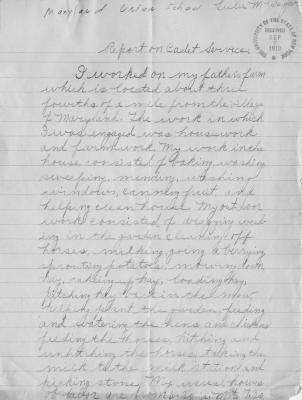 Maryland Union School Lulu M.
THE UNIVERSITY OF THE STATE OF NEW YORK
RECEIVED
SEP
Report on Cadet Service
I worked on my father's farm
which is located about three
fourths of a mile from the village
of Maryland. The work in which
I was engaged was housework
and farmwork. My work in the
house consisted of baking, washing
sweeping, mending, washing
windows, canning fruit, and
helping clean house. My outdoor
work consisted of weed
ing in the garden cleaning off
horses, milking, going a berrying
sprouting potatoes, mowing lawn
hay, raking hay, loading hay,
Pitching hay back in the mow,
helping plant the garden, feeding
and watering the hens and chickens
feeding the horses, hitching and
unhitching the horses, taking the
milk to the milk station and
picking stone. My usual hours
of labor are from six